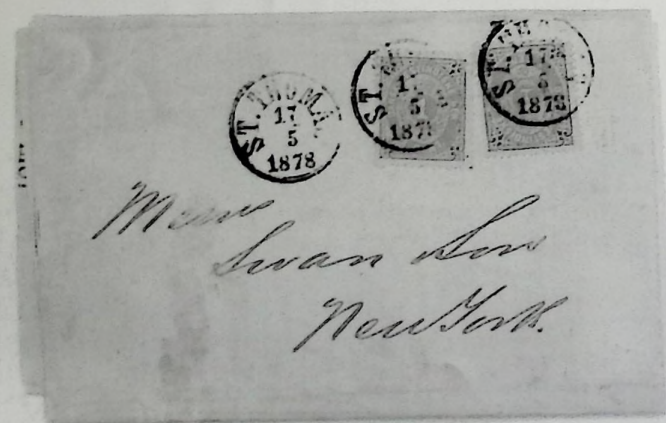 ST. THOMA
17
5
1878
ST.
17
5
187
ST.
17
5
1878
Messrs
Swan Son
New York.